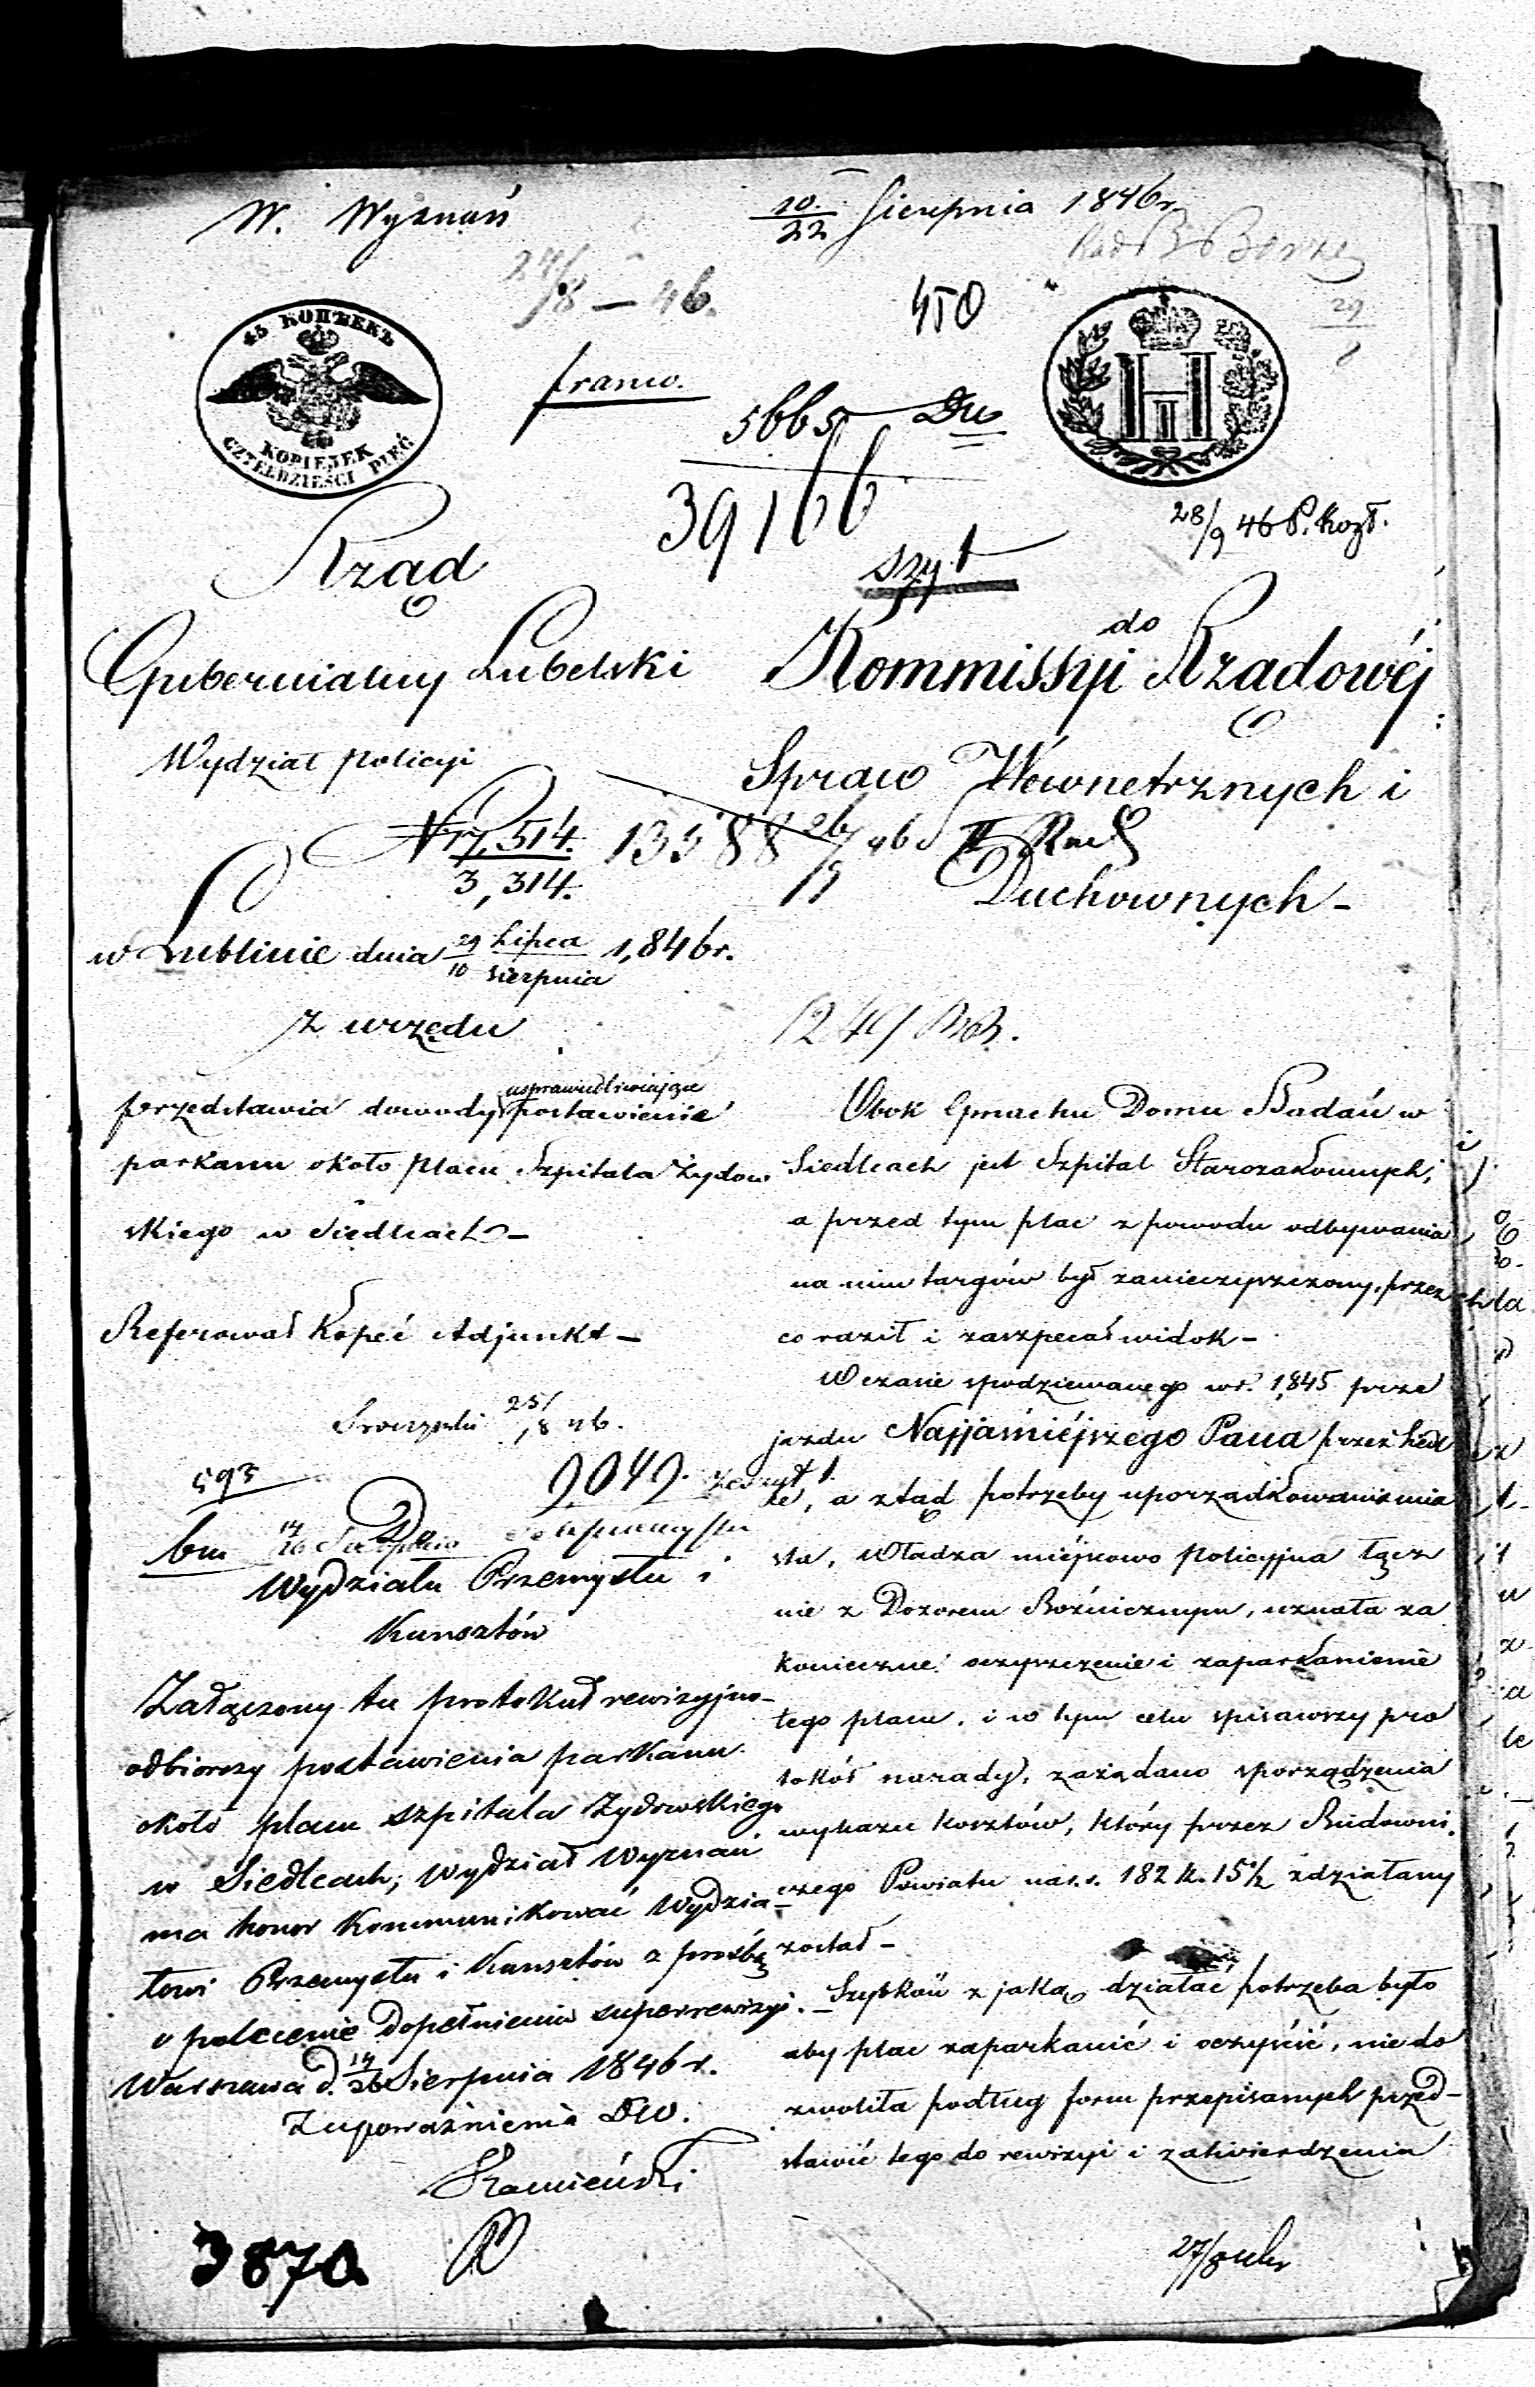 W. Wyznań
10/22 Sierpnia 1846 r.
27/8 – 46.
450
45 КОПѢЕКЪ
KOPIEJEK
CZTERDZIEŚCI PIĘĆ
franco.
5665
39166
28/9 46
szyt
Rząd
Gubernialny Lubelski
Wydział Policyi
Nr 17,514.
3,314.
13588 26/8 46
w Lublinie dnia 29 Lipca / 10 Sierpnia 1,846 r.
z urzędu
przedstawia dowody usprawiedliwiające postawienie
parkanu około placu Szpitala Żydow
skiego w Siedlcach –
Referował Kopeć Adjunkt –
25/8 46.
593
9049.
14/26
Do
Wydziału Przemysłu i
Kunsztów
Załączony tu protokuł rewizyjno-
odbiorczy postawienia parkanu
około placu szpitala Żydowskiego
w Siedlcach, Wydział Wyznań
ma honor kommunikować Wydzia-
łowi Przemysłu i Kunsztów z prośbą
o polecenie dopełnienia superrewizyi.
Warszawa d. 14/26 Sierpnia 1846 r.
Z upoważnienia
Kamieński
3870
do
Kommissyi Rządowéj
Spraw Wewnetrznych i
Duchownych –
1249
Obok Gmachu Domu Badań w
Siedlcach jest Szpital Starozakonnych,
a przed tym plac z powodu odbywania
na nim targów był zanieczyszczony, przez
co raził i zaszpecał widok –
W czasie spodziewanego w r. 1845 prze
jazdu Najjaśniéjszego Pana przez Siedl
ce, a ztąd potrzeby uporządkowania mia
sta, Władza miéjscowo policyjna łącz
nie z Dozorem Bóżnicznym, uznała za
konieczne oczyszczenie i zaparkanienie
tego placu, i w tym celu spisawszy pro
tokół narady, zażądano sporządzenia
wykazu kosztów, który przez Budowni
czego Powiatu na r. s. 182 k. 15½ zdziałany
został –
Szybkość z jaką działać potrzeba było
aby plac zaparkanić i oczyścić, nie do
zwoliła podług form przepisanych przed-
stawić tego do rewizyi i zatwierdzenia